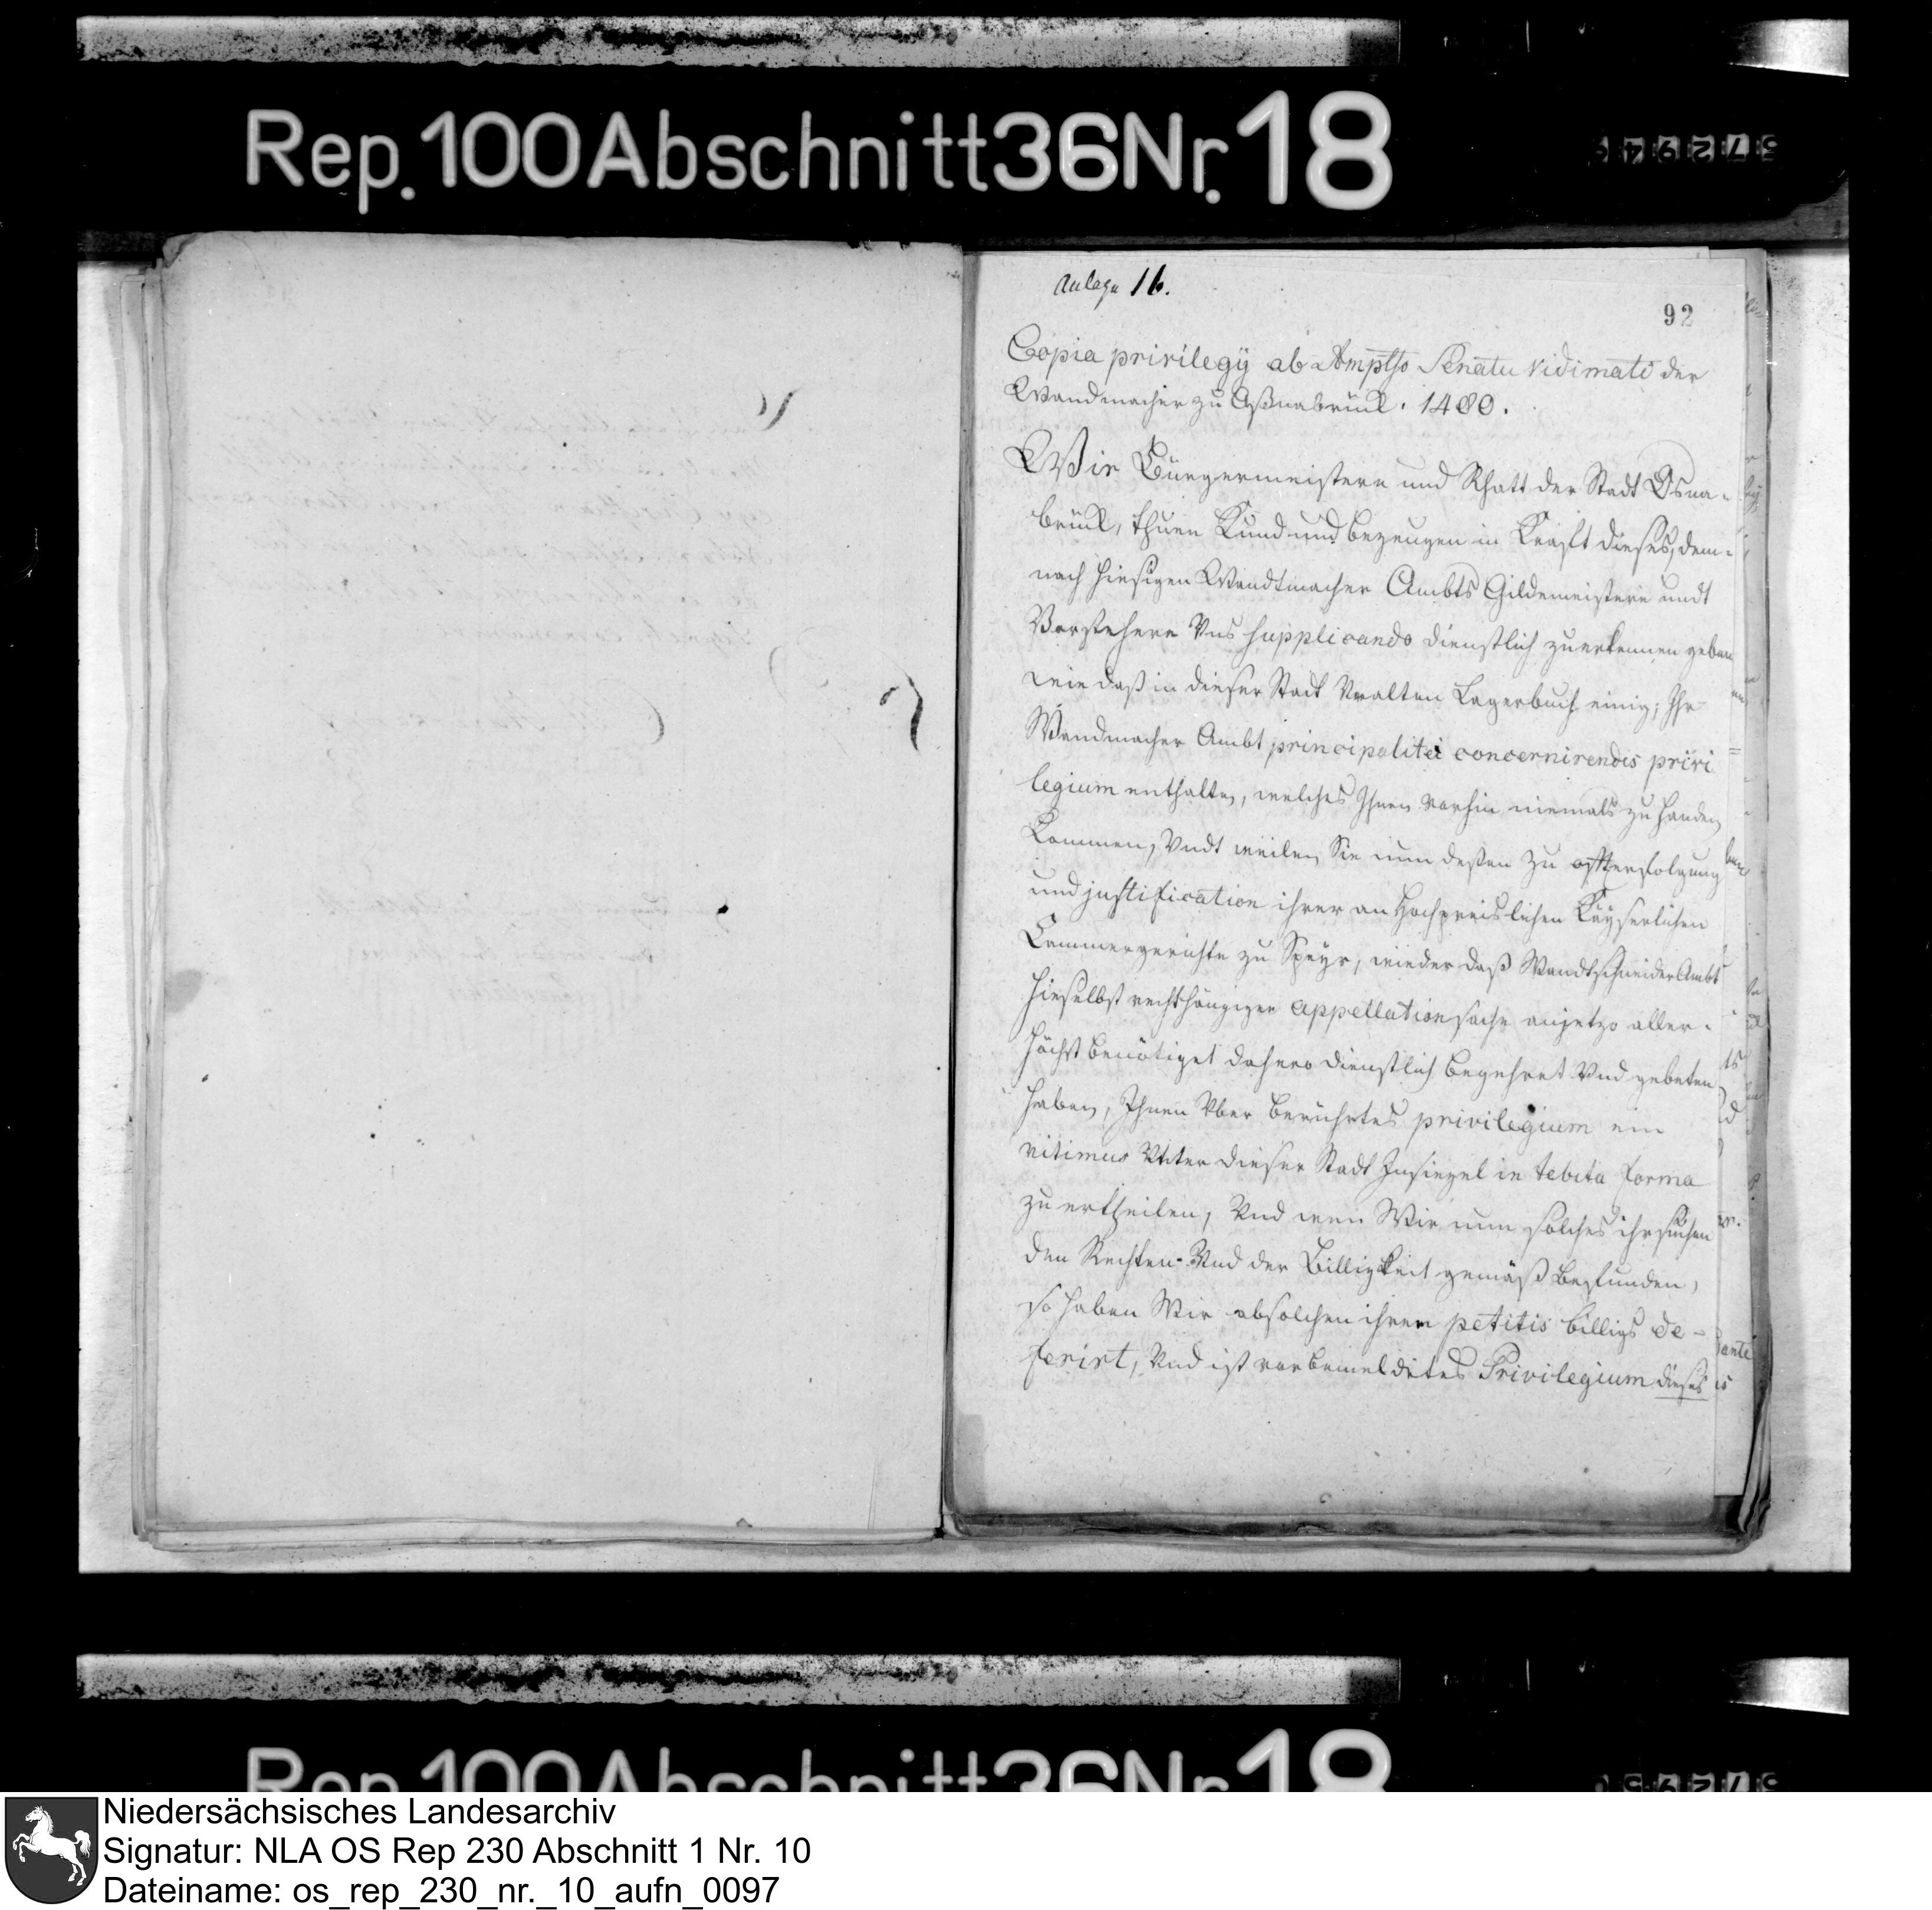 Rep. 100 Abschnitt 36 Nr. 18
Anlage 16.
92
Copia privilegÿ ab Ampltsso Senatu vidimati der
Wandmacher zu Oßnabrück. 1480.
Wir Bürgermeistere und Rhatt der Stadt Osna-
brück, thuen Kund und bezeugen in Krafft dieses, dem-
nach hiesigen Wandtmacher Ambts Gildemeistere undt
Vorstehere Vns supplicando dienstlich zuerkennen geben
wie daß in dieser Stadt Vralten Lagerbuch einig, Ihr
Wandmacher Ambt principaliter concernirendes privi
legium enthalten, welches Ihnen vorhin niemals zu handen
Kommen, Vndt weilen Sie nun deßen zu
und justification ihrer an Hochpreislichen Kayserlichen
Cammergerichte zu Speyr, wieder daß Wandtschneider Ambt
hieselbst rechthängigen appellation sache anjetzo aller-
höchst benötiget dahero dienstlich begehret Vnd gebeten
haben, Ihnen Vber berührtes privilegium ein
vitimus Vnter dieser Stadt Insiegel in tebita forma
zu ertheilen, Vnd wen Wir nun solches ihr suchen
den Rechten- Vnd der Billigkeit gemäß befunden,
so haben Wir absolchen ihren petitis billigs de-
ferirt, Vnd ist vorbemeldetes Privilegium dieses
Rep. 100 Abschnitt 36 Nr. 18
Niedersächsisches Landesarchiv
Signatur: NLA OS Rep 230 Abschnitt 1 Nr. 10
Dateiname: os_rep_230_nr._10_aufn_0097